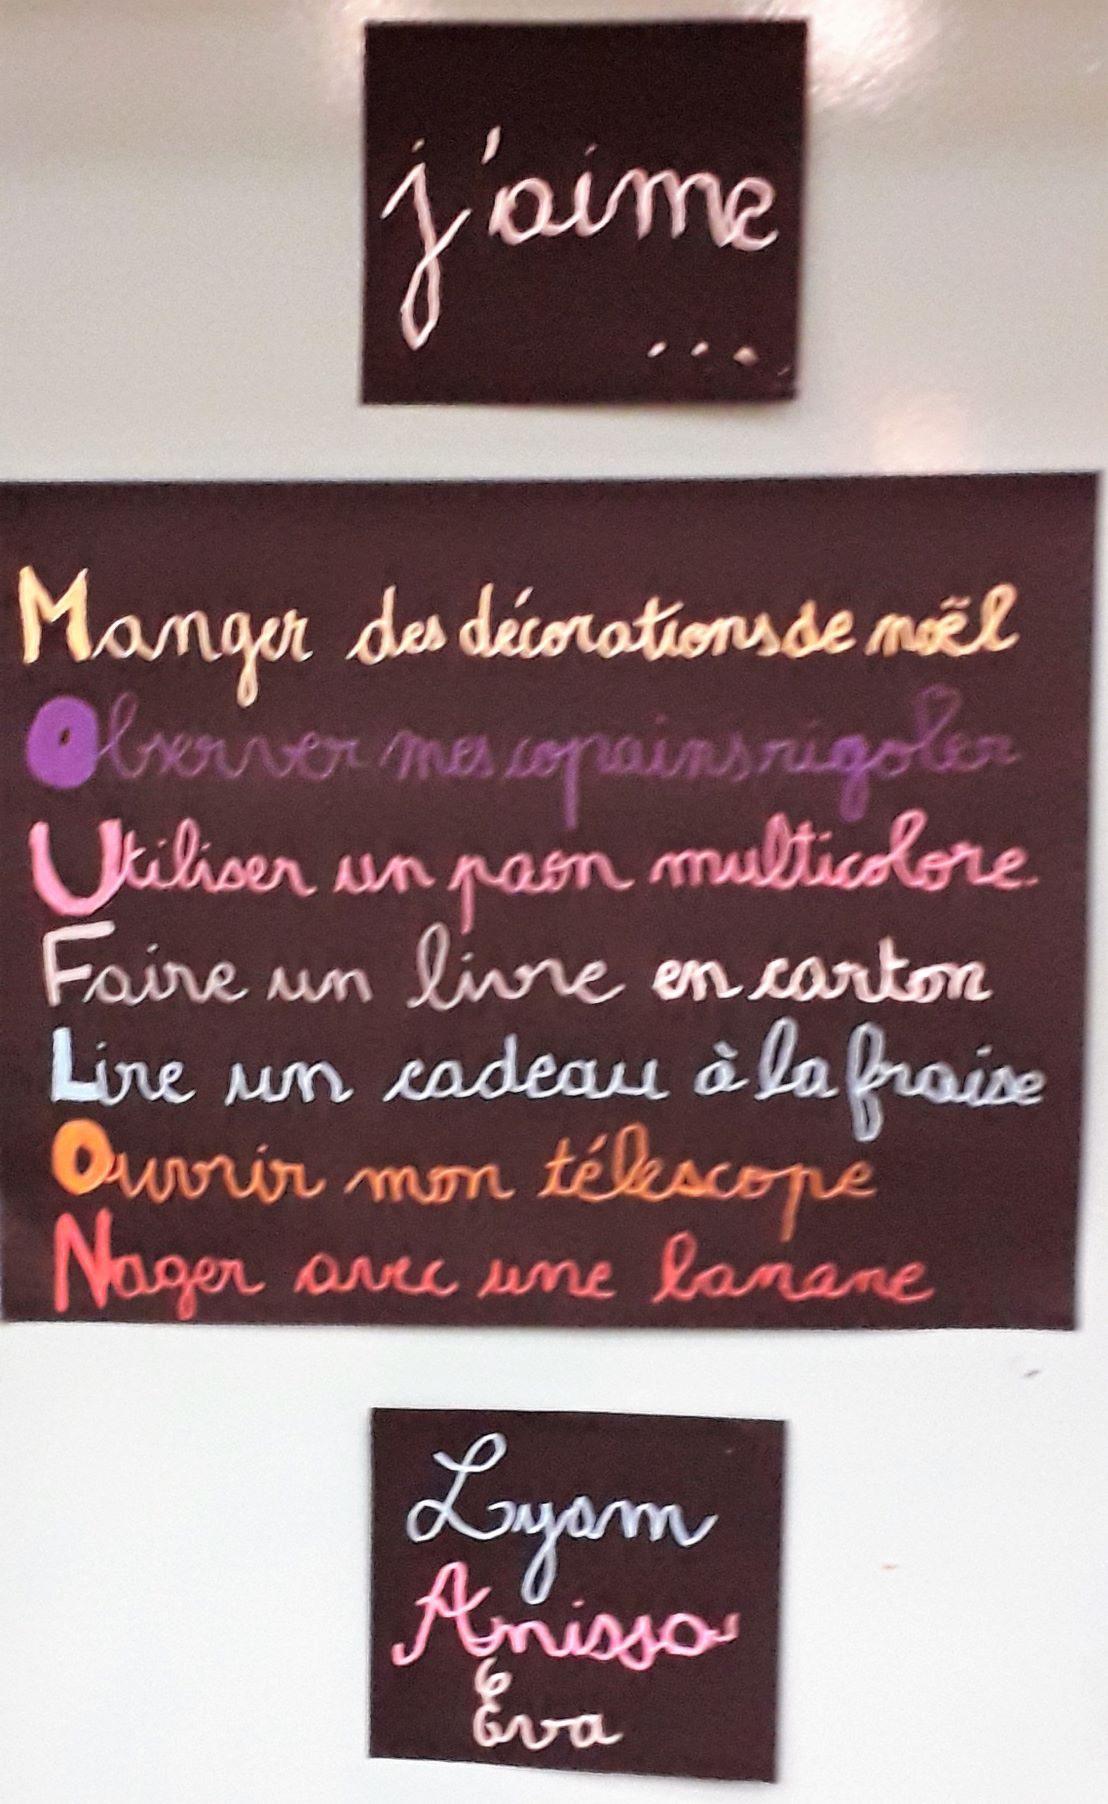 j'aime
...
Manger des décorations de noël
Observer mes copains rigoler
Utiliser un paon multicolore.
Faire un livre en carton
Lire un cadeau à la fraise
Ouvrir mon télescope
Nager avec une banane
Lyam
Anissa
Eva